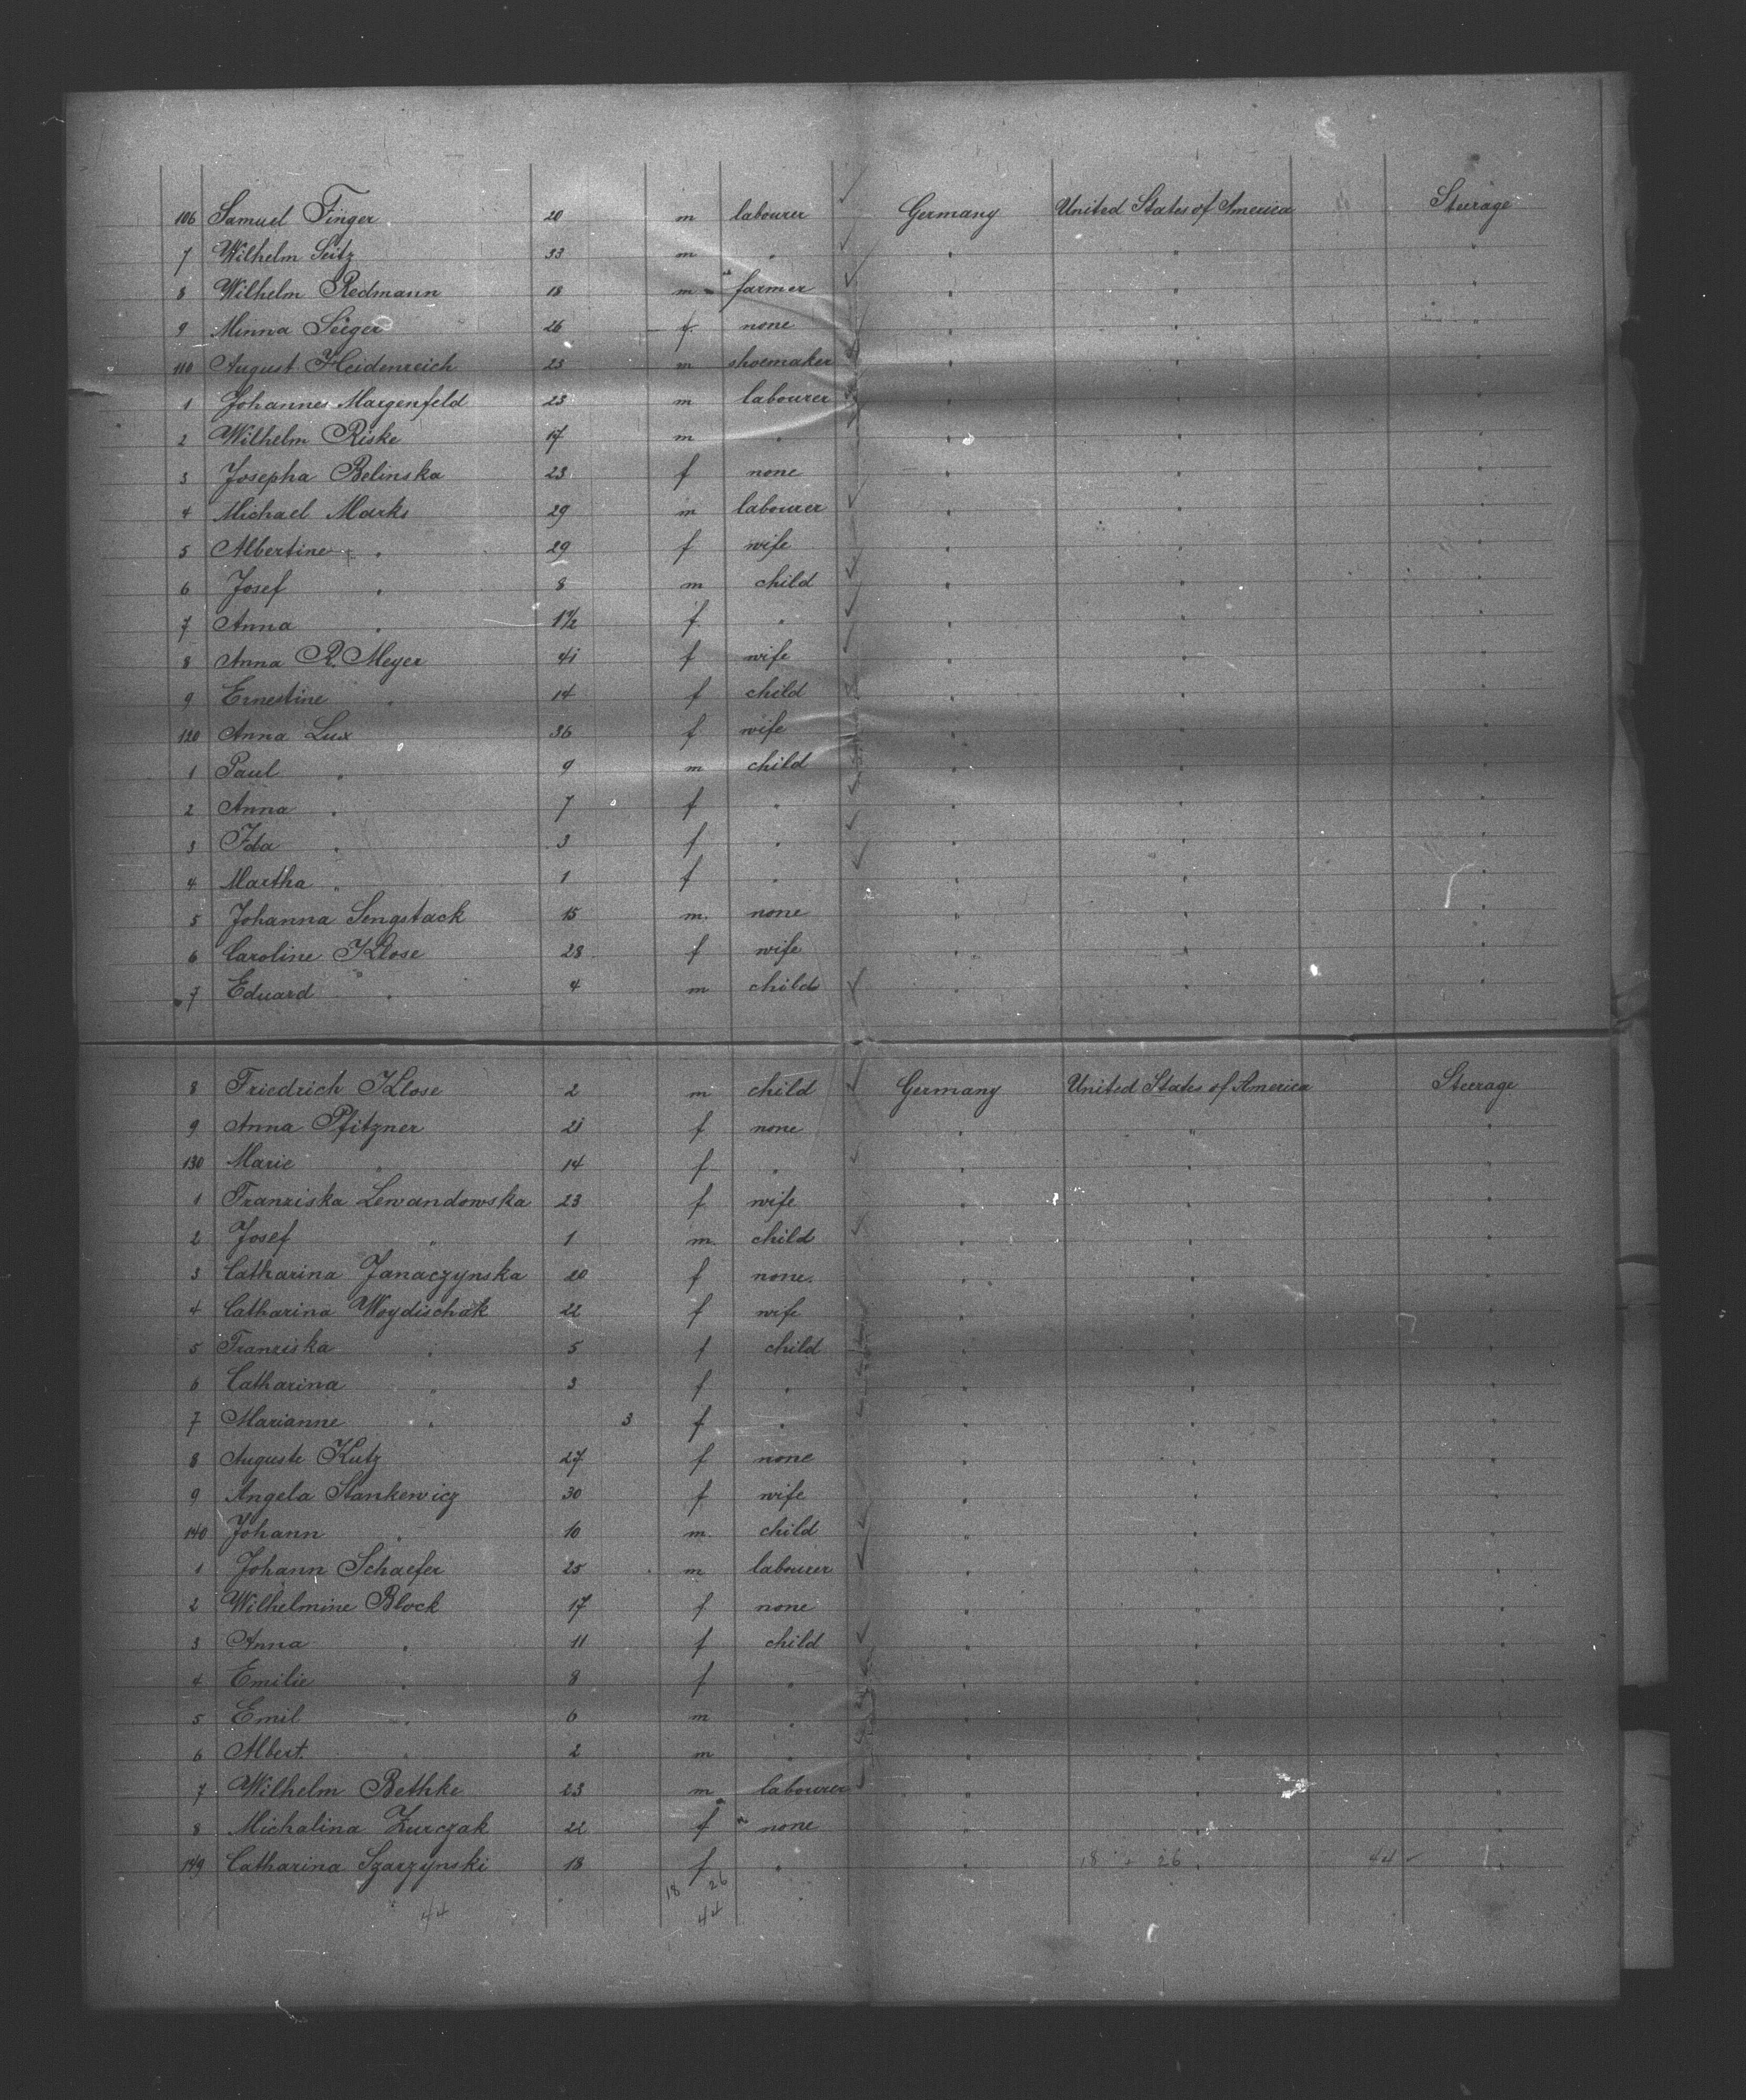 106 Samuel Finger 20 m labourer Germany United States of America Steerage
7 Wilhelm Seitz 33 m " " " "
8 Wilhelm Redmann 18 m farmer " " "
9 Minna Seeger 26 f none " " "
110 August Heidenreich 25 m shoemaker " " "
1 Johannes Margenfeld 23 m labourer " " "
2 Wilhelm Riske 17 m " " " "
3 Josepha Belinska 23 f none " " "
4 Michael Marks 29 m labourer " " "
5 Albertine " 29 f wife " " "
6 Josef " 8 m child " " "
7 Anna " 1½ f " " " "
8 Anna R. Meyer 41 f wife " " "
9 Ernestine " 14 f child " " "
120 Anna Lux 36 f wife " " "
1 Paul " 9 m child " " "
2 Anna " 7 f " " " "
3 Ida " 3 f " " " "
4 Martha " 1 f " " " "
5 Johanna Sengstack 15 m. none " " "
6 Caroline Klose 28 f wife " " "
7 Eduard " 4 m child " " "
8 Friedrich Klose 2 m child Germany United States of America Steerage
9 Anna Pfitzner 21 f none " " "
130 Marie " 14 f " " " "
1 Franziska Lewandowska 23 f wife " " "
2 Josef " 1 m. child " " "
3 Catharina Janaczynska 20 f none. " " "
4 Catharina Woydischak 22 f wife " " "
5 Franziska " 5 f child " " "
6 Catharina " 3 f " " " "
7 Marianne " 3 f " " " "
8 Auguste Kutz 27 f none " " "
9 Angela Stankewicz 30 f wife " " "
140 Johann " 10 m. child " " "
1 Johann Schaefer 25 m labourer " " "
2 Wilhelmine Block 17 f none " " "
3 Anna " 11 f child " " "
4 Emilie " 8 f " " " "
5 Emil " 6 m " " " "
6 Albert. " 2 m " " " "
7 Wilhelm Bethke 23 m labourer " " "
8 Michalina Zurczak 22 f none " " "
149 Catharina Szarzynski 18 f " " 18 26 44
18 26
44 44